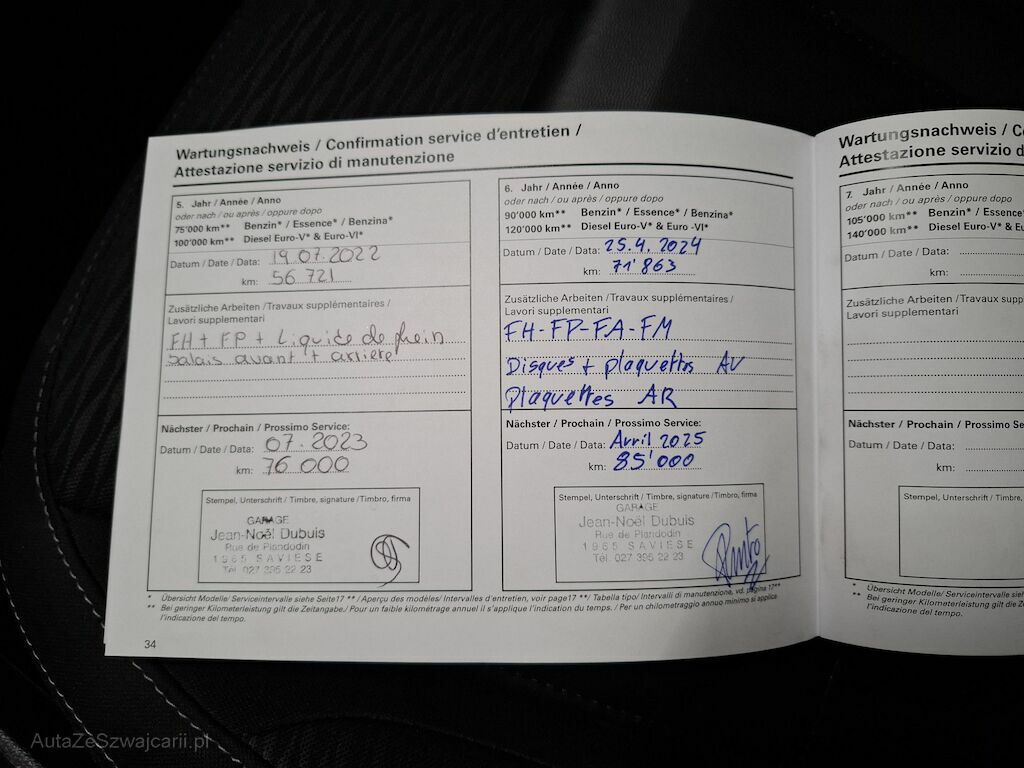 Wartungsnachweis / Confirmation service d'entretien /
Attestazione servizio di manutenzione
5. Jahr / Année / Anno
oder nach / ou après / oppure dopo
75'000 km** Benzin* / Essence* / Benzina*
100'000 km** Diesel Euro-V* & Euro-VI*
Datum / Date / Data: 19.07.2022
km: 56 721
Zusätzliche Arbeiten / Travaux supplémentaires /
Lavori supplementari
FH + FP + Liquide de frein
balais avant + arrière
Nächster / Prochain / Prossimo Service:
Datum / Date / Data: 07.2023
km: 76 000
Stempel, Unterschrift / Timbre, signature / Timbro, firma
GARAGE
Jean-Noël Dubuis
Rue de Plandodin
1965 SAVIESE
Tél. 027 395 22 23
6. Jahr / Année / Anno
oder nach / ou après / oppure dopo
90'000 km** Benzin* / Essence* / Benzina*
120'000 km** Diesel Euro-V* & Euro-VI*
Datum / Date / Data: 25.4.2024
km: 71'863
Zusätzliche Arbeiten / Travaux supplémentaires /
Lavori supplementari
FH-FP-FA-FM
Disques + plaquettes AV
Plaquettes AR
Nächster / Prochain / Prossimo Service:
Datum / Date / Data: Avril 2025
km: 85'000
Stempel, Unterschrift / Timbre, signature / Timbro, firma
GARAGE
Jean-Noël Dubuis
Rue de Plandodin
1965 SAVIESE
Tél. 027 395 22 23
* Übersicht Modelle/ Serviceintervalle siehe Seite17 ** / Aperçu des modèles/ Intervalles d'entretien, voir page17 **/ Tabella tipo/ Intervalli di manutenzione, vd. pagina 17**
** Bei geringer Kilometerleistung gilt die Zeitangabe./ Pour un faible kilométrage annuel il s'applique l'indication du temps. / Per un chilometraggio annuo minimo si applica
l'indicazione del tempo.
34
Wartungsnachweis / Co
Attestazione servizio d
7. Jahr / Année / Anno
oder nach / ou après / oppure dopo
105'000 km** Benzin* / Essence*
140'000 km** Diesel Euro-V* & E
Datum / Date / Data:
km:
Zusätzliche Arbeiten / Travaux sup
Lavori supplementari
Nächster / Prochain / Prossimo Se
Datum / Date / Data:
km:
Stempel, Unterschrift / Timbre, s
* Übersicht Modelle/ Serviceintervalle siehe Se
** Bei geringer Kilometerleistung gilt die Zeitan
l'indicazione del tempo.
AutaZeSzwajcarii.pl